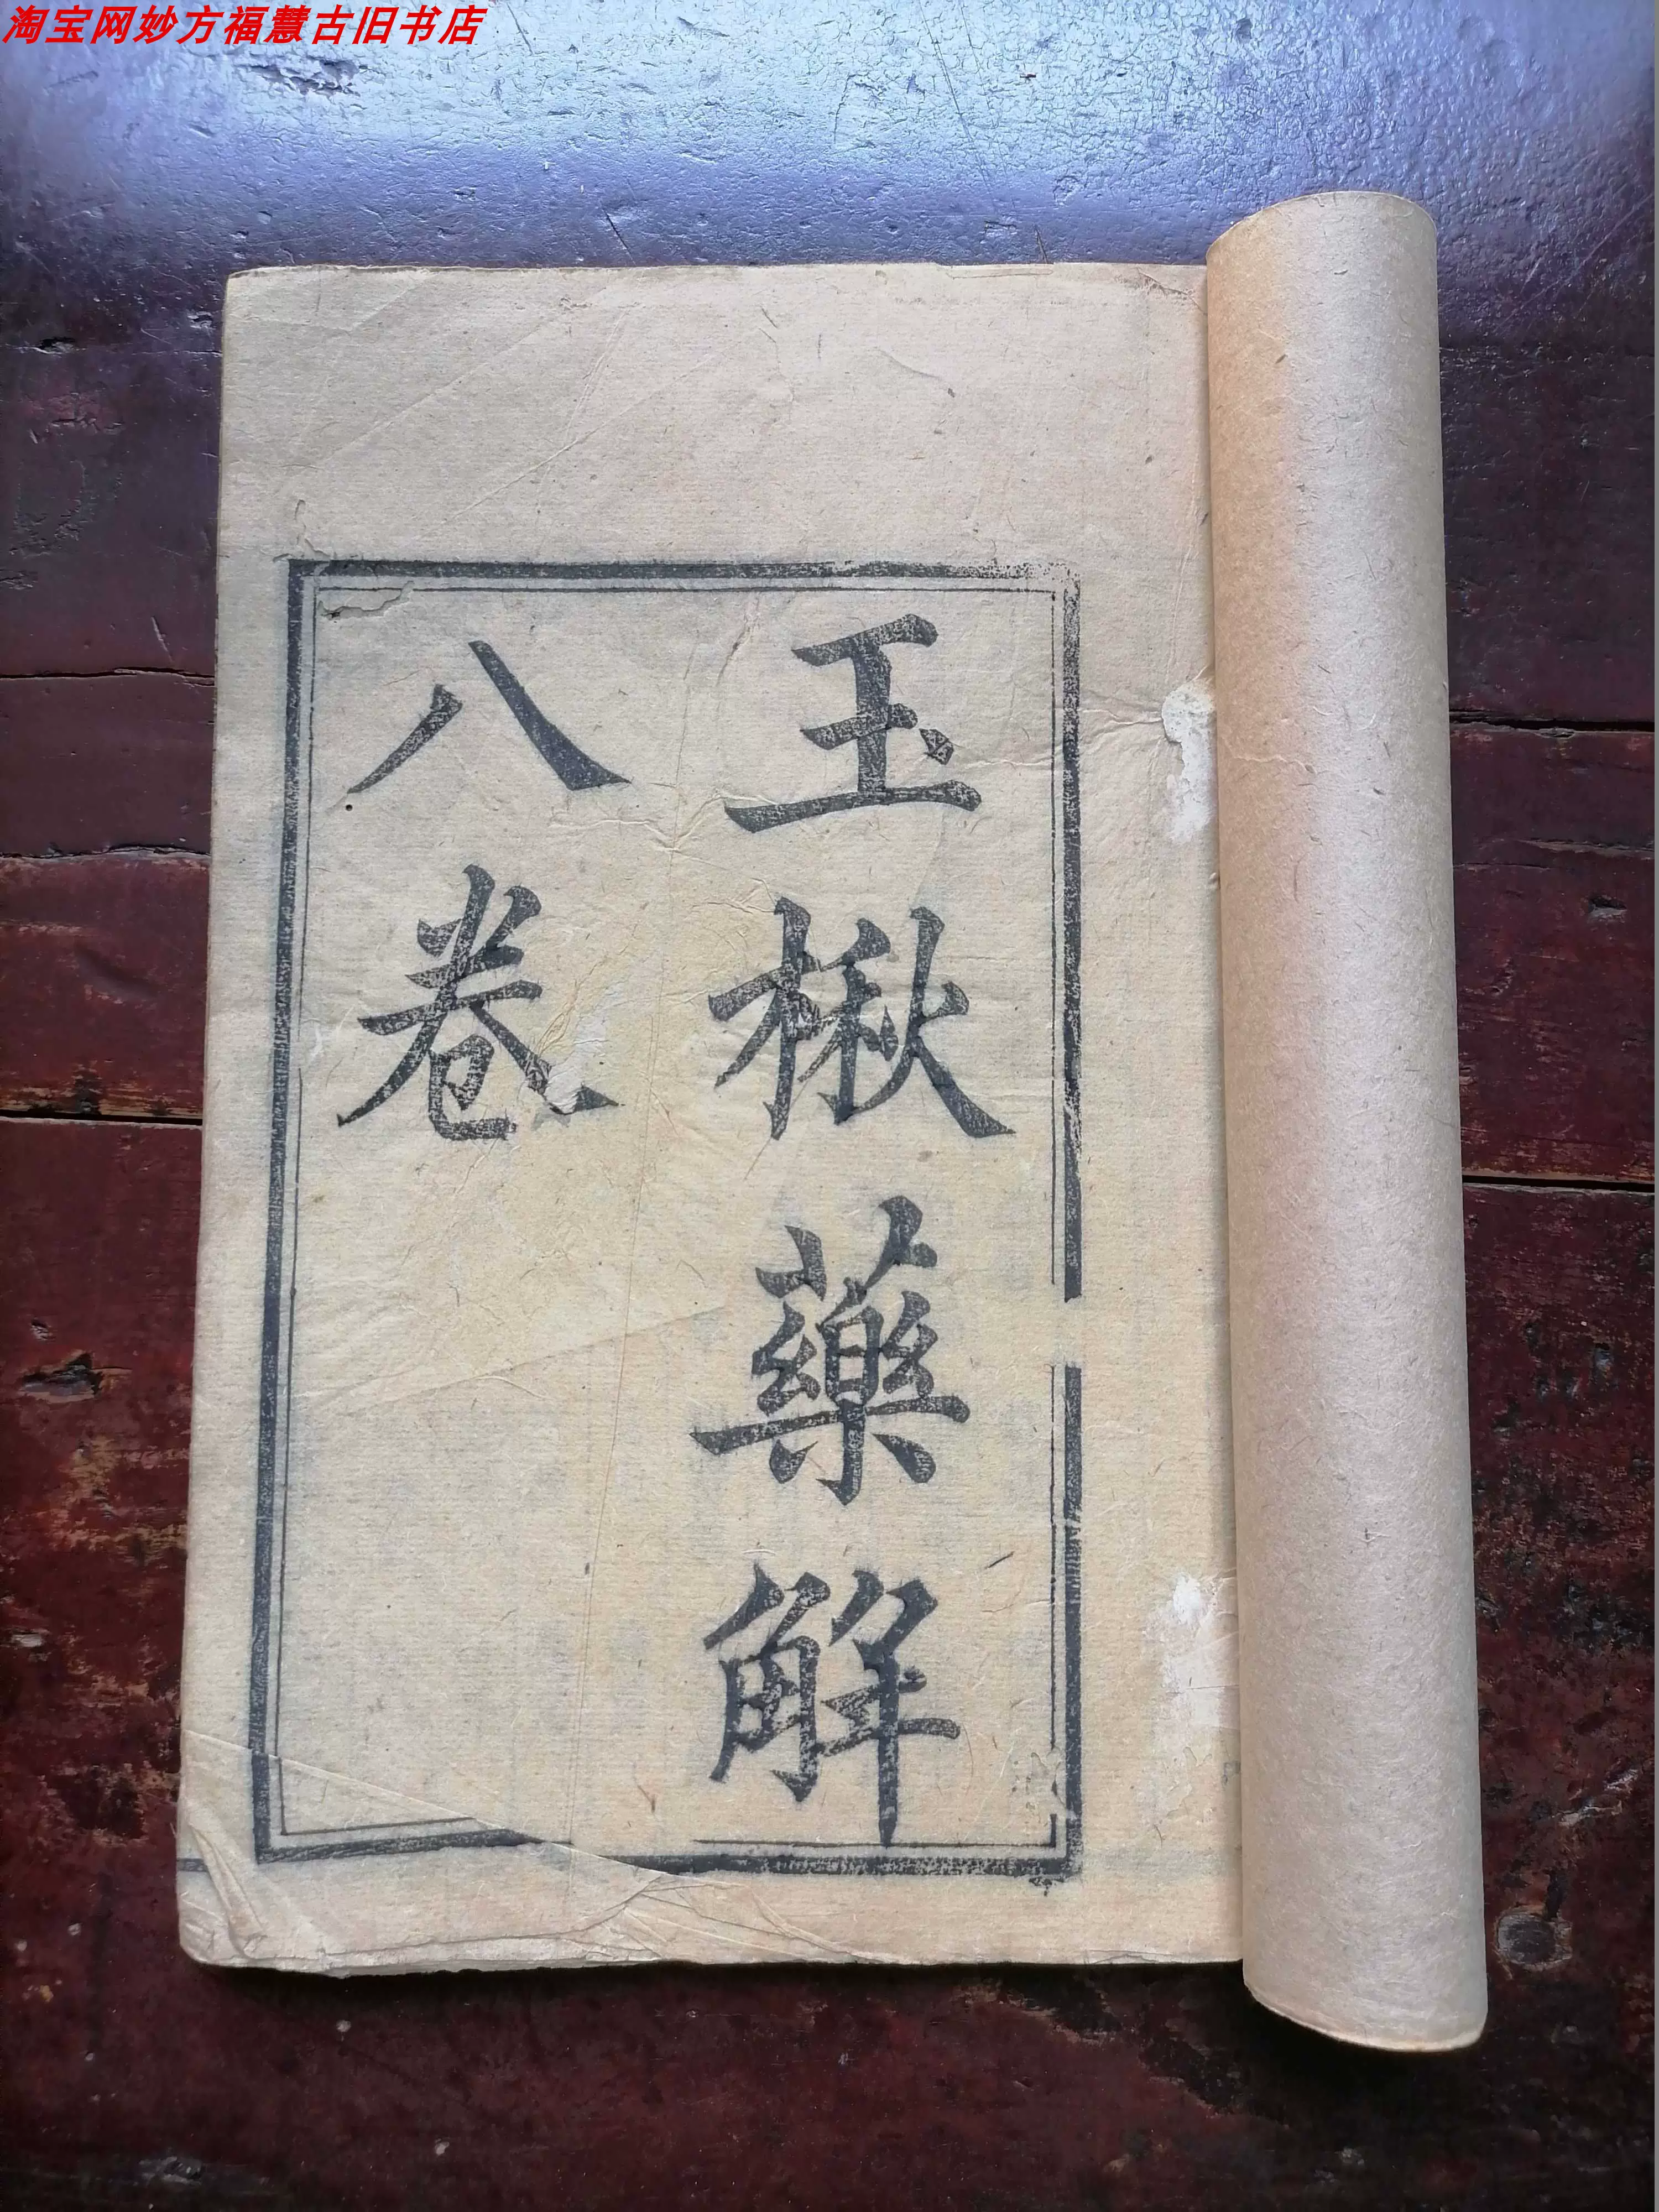 淘宝网妙方福慧古旧书店
玉楸藥解
八卷